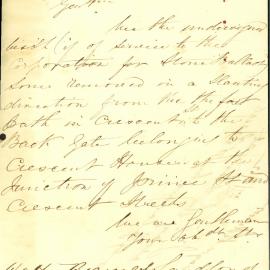 Gentlemen
We the undersigned
wish (if of service to the
Corporation for Stone Ballast)
Some removed in a Slanting
direction from the the foot
Bath in Crescent to the
Back Gate belonging to
Crescent House at the
Junction of Prince St and
Crescent Streets
We are Gentlemen
Your